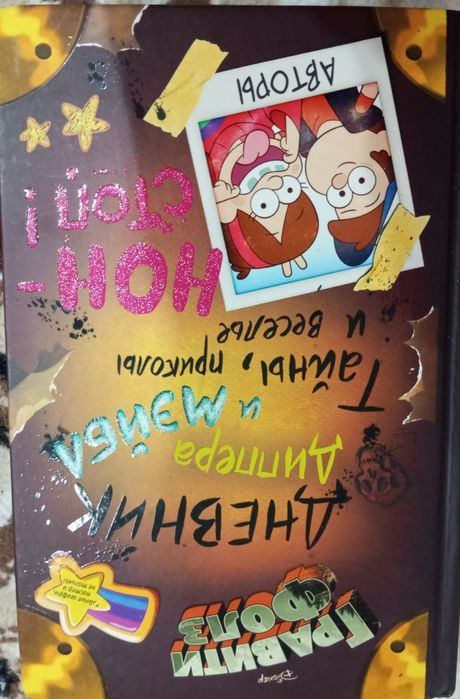 Дисней
ГРАВИТИ
ФОЛЗ
Тайные шифры,
постер и
не только!
ДНЕВНИК
Диппера
и МЭЙБЛ
Тайны, приколы
и веселье
НОН-
СТОП!
АВТОРЫ